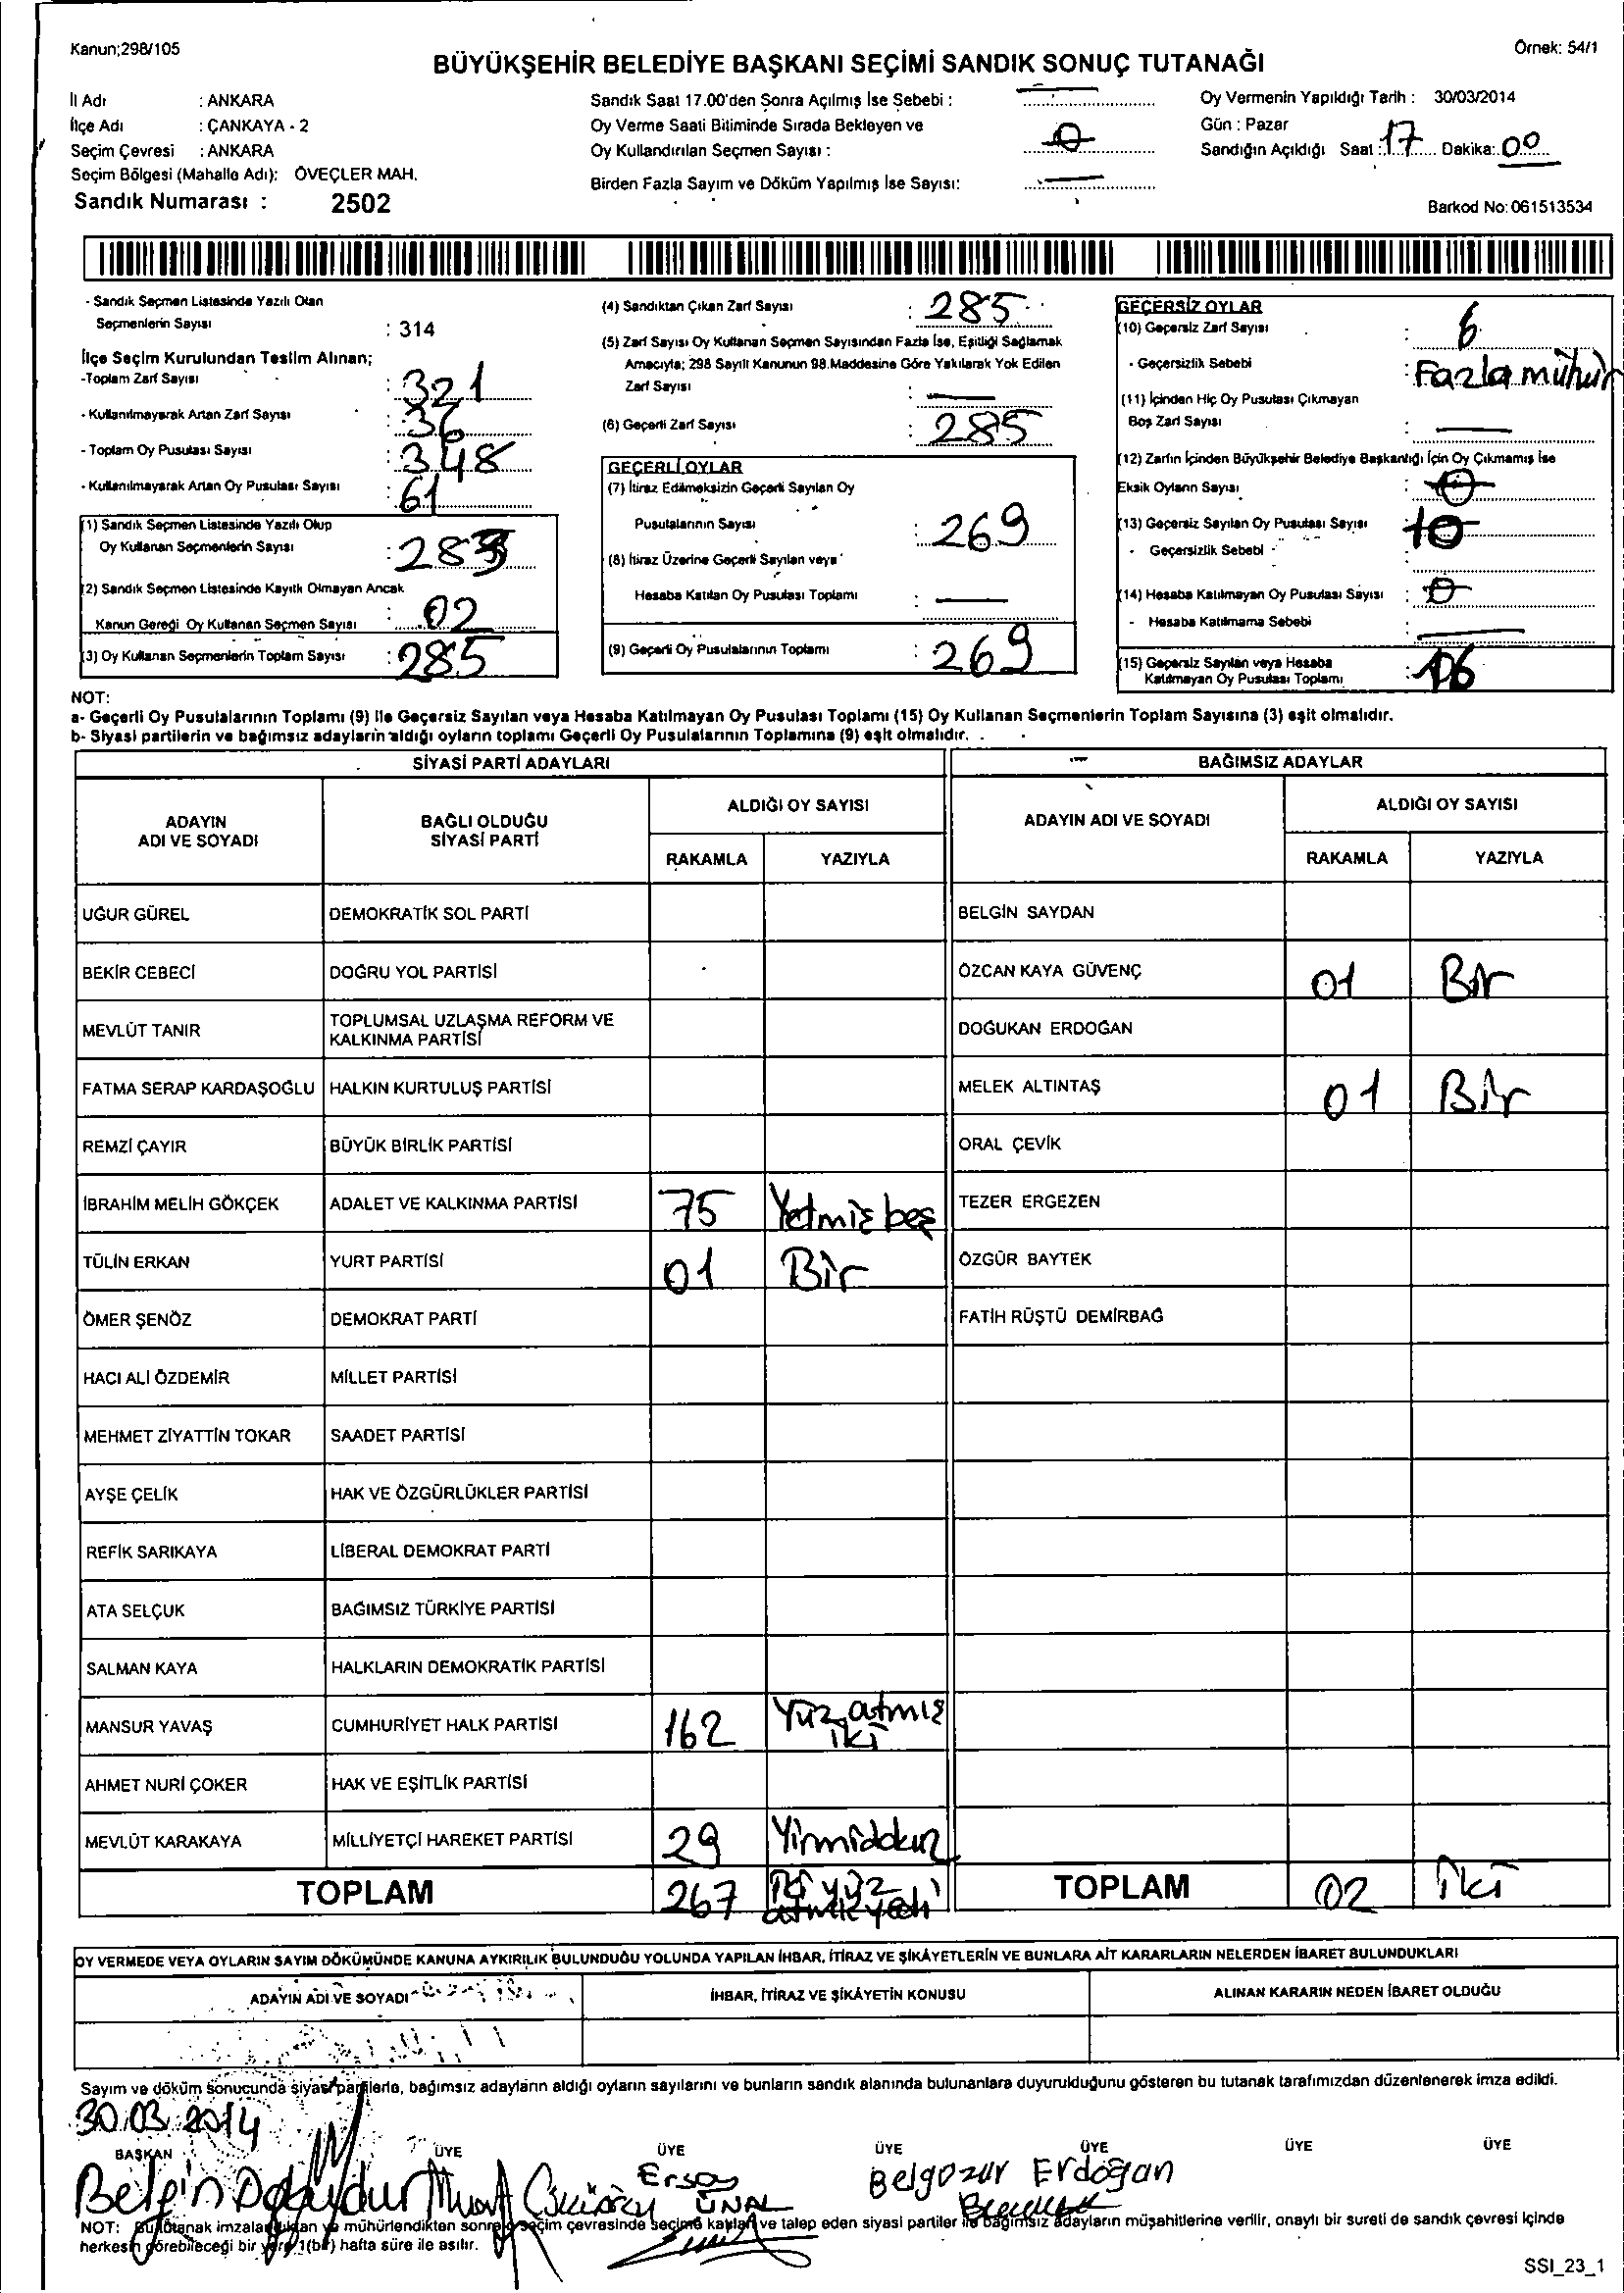 Kanun;298/105
Örnek: 54/1
BÜYÜKŞEHİR BELEDİYE BAŞKANI SEÇİMİ SANDIK SONUÇ TUTANAĞI
İl Adı : ANKARA
İlçe Adı : ÇANKAYA - 2
Seçim Çevresi : ANKARA
Seçim Bölgesi (Mahalle Adı): ÖVEÇLER MAH.
Sandık Numarası : 2502
Sandık Saat 17.00'den Sonra Açılmış İse Sebebi :
Oy Verme Saati Bitiminde Sırada Bekleyen ve
Oy Kullandırılan Seçmen Sayısı : 0
Birden Fazla Sayım ve Döküm Yapılmış İse Sayısı:
Oy Vermenin Yapıldığı Tarih : 30/03/2014
Gün : Pazar
Sandığın Açıldığı Saat : 17 Dakika: 00
Barkod No: 061513534
- Sandık Seçmen Listesinde Yazılı Olan
Seçmenlerin Sayısı : 314
İlçe Seçim Kurulundan Teslim Alınan;
-Toplam Zarf Sayısı : 321
- Kullanılmayarak Artan Zarf Sayısı : 36
- Toplam Oy Pusulası Sayısı : 348
- Kullanılmayarak Artan Oy Pusulası Sayısı : 61
(1) Sandık Seçmen Listesinde Yazılı Olup
Oy Kullanan Seçmenlerin Sayısı : 283
(2) Sandık Seçmen Listesinde Kayıtlı Olmayan Ancak
Kanun Gereği Oy Kullanan Seçmen Sayısı : 02
(3) Oy Kullanan Seçmenlerin Toplam Sayısı : 285
(4) Sandıktan Çıkan Zarf Sayısı : 285
(5) Zarf Sayısı Oy Kullanan Seçmen Sayısından Fazla İse, Eşitliği Sağlamak
Amacıyla; 298 Sayılı Kanunun 98.Maddesine Göre Yakılarak Yok Edilen
Zarf Sayısı :
(6) Geçerli Zarf Sayısı : 285
GEÇERLİ OYLAR
(7) İtiraz Edilmeksizin Geçerli Sayılan Oy
Pusulalarının Sayısı : 269
(8) İtiraz Üzerine Geçerli Sayılan veya
Hesaba Katılan Oy Pusulası Toplamı :
(9) Geçerli Oy Pusulalarının Toplamı : 269
GEÇERSİZ OYLAR
(10) Geçersiz Zarf Sayısı : 6
- Geçersizlik Sebebi : Fazla mühür
(11) İçinden Hiç Oy Pusulası Çıkmayan
Boş Zarf Sayısı :
(12) Zarfın İçinden Büyükşehir Belediye Başkanlığı İçin Oy Çıkmamış İse
Eksik Oyların Sayısı : 0
(13) Geçersiz Sayılan Oy Pusulası Sayısı : 10
- Geçersizlik Sebebi
(14) Hesaba Katılmayan Oy Pusulası Sayısı : 0
- Hesaba Katılmama Sebebi :
(15) Geçersiz Sayılan veya Hesaba
Katılmayan Oy Pusulası Toplamı : 16
NOT:
a- Geçerli Oy Pusulalarının Toplamı (9) ile Geçersiz Sayılan veya Hesaba Katılmayan Oy Pusulası Toplamı (15) Oy Kullanan Seçmenlerin Toplam Sayısına (3) eşit olmalıdır.
b- Siyasi partilerin ve bağımsız adayların aldığı oyların toplamı Geçerli Oy Pusulalarının Toplamına (9) eşit olmalıdır.
SİYASİ PARTİ ADAYLARI
ADAYIN ADI VE SOYADI
BAĞLI OLDUĞU SİYASİ PARTİ
ALDIĞI OY SAYISI
RAKAMLA YAZIYLA
UĞUR GÜREL DEMOKRATİK SOL PARTİ
BEKİR CEBECİ DOĞRU YOL PARTİSİ
MEVLÜT TANIR TOPLUMSAL UZLAŞMA REFORM VE KALKINMA PARTİSİ
FATMA SERAP KARDAŞOĞLU HALKIN KURTULUŞ PARTİSİ
REMZİ ÇAYIR BÜYÜK BİRLİK PARTİSİ
İBRAHİM MELİH GÖKÇEK ADALET VE KALKINMA PARTİSİ 75 Yetmiş beş
TÜLİN ERKAN YURT PARTİSİ 01 Bir
ÖMER ŞENÖZ DEMOKRAT PARTİ
HACI ALİ ÖZDEMİR MİLLET PARTİSİ
MEHMET ZİYATTİN TOKAR SAADET PARTİSİ
AYŞE ÇELİK HAK VE ÖZGÜRLÜKLER PARTİSİ
REFİK SARIKAYA LİBERAL DEMOKRAT PARTİ
ATA SELÇUK BAĞIMSIZ TÜRKİYE PARTİSİ
SALMAN KAYA HALKLARIN DEMOKRATİK PARTİSİ
MANSUR YAVAŞ CUMHURİYET HALK PARTİSİ 162 Yüz atmış iki
AHMET NURİ ÇOKER HAK VE EŞİTLİK PARTİSİ
MEVLÜT KARAKAYA MİLLİYETÇİ HAREKET PARTİSİ 29 Yirmidokuz
TOPLAM 267 İki yüz atmış yedi
BAĞIMSIZ ADAYLAR
ADAYIN ADI VE SOYADI
ALDIĞI OY SAYISI
RAKAMLA YAZIYLA
BELGİN SAYDAN
ÖZCAN KAYA GÜVENÇ 01 Bir
DOĞUKAN ERDOĞAN
MELEK ALTINTAŞ 01 Bir
ORAL ÇEVİK
TEZER ERGEZEN
ÖZGÜR BAYTEK
FATİH RÜŞTÜ DEMİRBAĞ
TOPLAM 02 İki
OY VERMEDE VEYA OYLARIN SAYIM DÖKÜMÜNDE KANUNA AYKIRILIK BULUNDUĞU YOLUNDA YAPILAN İHBAR, İTİRAZ VE ŞİKÂYETLERİN VE BUNLARA AİT KARARLARIN NELERDEN İBARET BULUNDUKLARI
ADAYIN ADI VE SOYADI
İHBAR, İTİRAZ VE ŞİKÂYETİN KONUSU
ALINAN KARARIN NEDEN İBARET OLDUĞU
Sayım ve döküm sonucunda siyasi partilerle, bağımsız adayların aldığı oyların sayılarını ve bunların sandık alanında bulunanlara duyurulduğunu gösteren bu tutanak tarafımızdan düzenlenerek imza edildi.
30.03.2014
BAŞKAN ÜYE ÜYE ÜYE ÜYE ÜYE ÜYE
Belgin
Ersoy ÜNAL
Belgozur Erdoğan
NOT: Bu tutanak imzalandıktan ve mühürlendikten sonra seçim çevresinde seçime katılan ve talep eden siyasi partiler ile bağımsız adayların müşahitlerine verilir, onaylı bir sureti de sandık çevresi içinde
herkesin görebileceği bir yere 1(bir) hafta süre ile asılır.
SSI_23_1